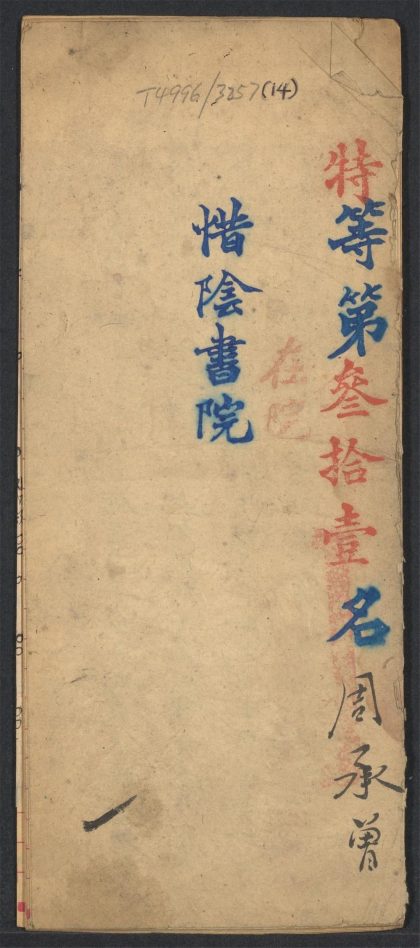 T4996/3257(14)
特等第叄拾壹名周承曾
在院
惜陰書院